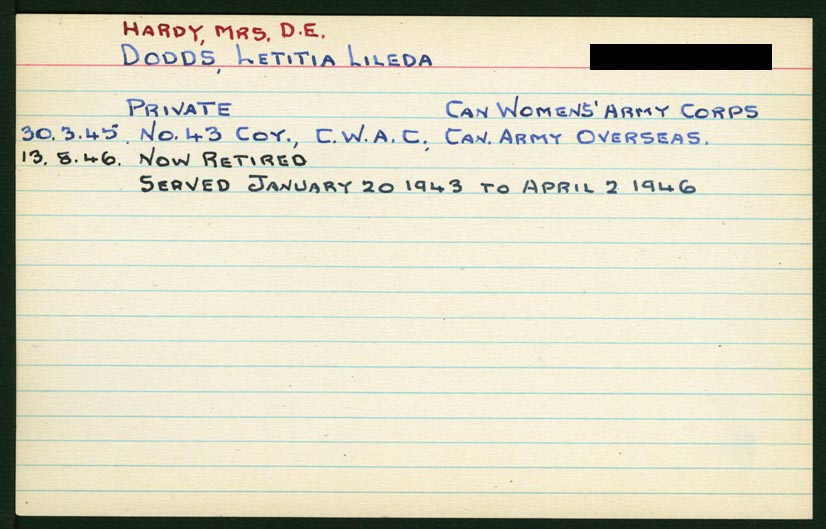 HARDY, MRS. D.E.
DODDS, LETITIA LILEDA
PRIVATE CAN WOMENS' ARMY CORPS
30.3.45. No. 43 COY., C.W.A.C., CAN. ARMY OVERSEAS.
13.5.46. NOW RETIRED
SERVED JANUARY 20 1943 TO APRIL 2 1946